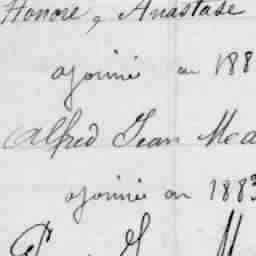 Honoré, Anastase
ajourné en 188
Alfred Jean Mea
ajourné en 1883